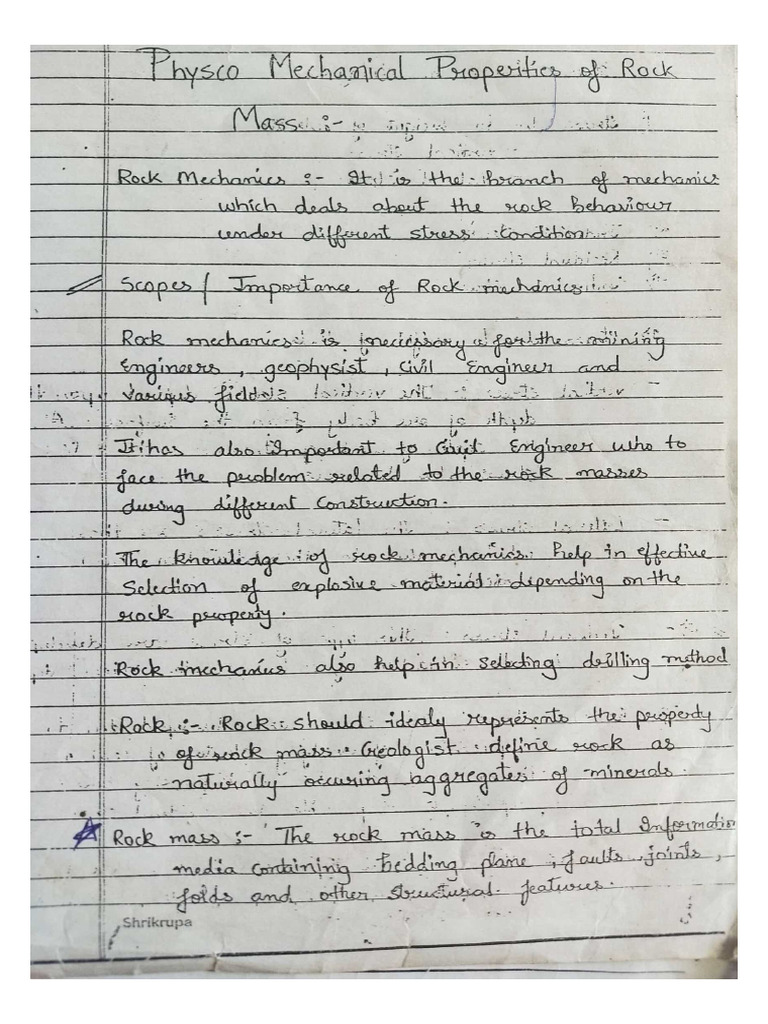 Physco Mechanical Properities of Rock
Mass :-
Rock Mechanics :- It is the branch of mechanics
which deals about the rock behaviour
under different stress condition
Scopes / Importance of Rock mechanics
Rock mechanics is necessary for the mining
Engineers, geophysist, Civil Engineer and
various fields
It has also Important to Civil Engineer who to
face the problem related to the rock masses
during different construction.
The knowledge of rock mechanics help in effective
Selection of explosive material depending on the
rock property.
Rock mechanics also help in selecting drilling method
Rock :- Rock should idealy represents the property
of rock mass. Geologist define rock as
naturally occuring aggregates of minerals.
Rock mass :- The rock mass is the total Information
media containing bedding plane, faults, joints,
folds and other structural features.
Shrikrupa